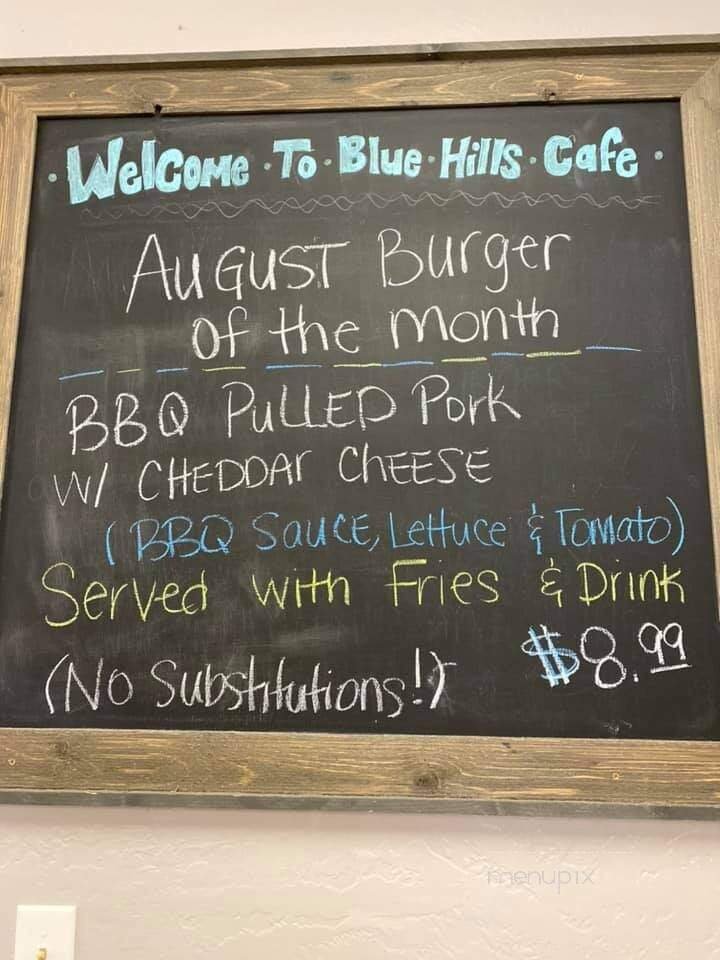 · Welcome · To · Blue · Hills · Cafe ·
August Burger
of the month
BBQ Pulled Pork
w/ Cheddar Cheese
(BBQ Sauce, Lettuce & Tomato)
Served with Fries & Drink
(No Substitutions!) $8.99
menupix